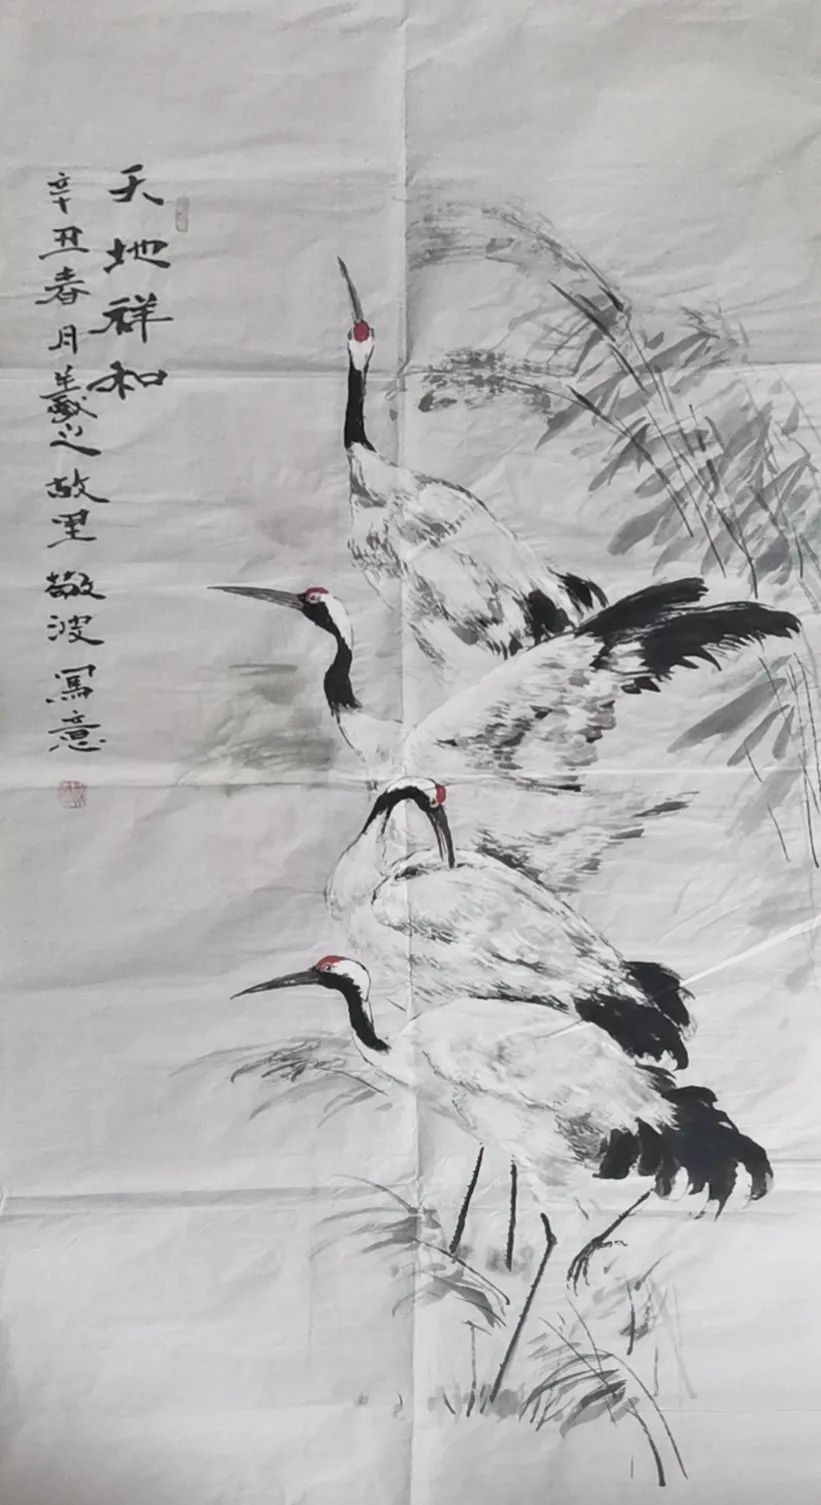 天地祥和
辛丑春月羲之故里敬波写意